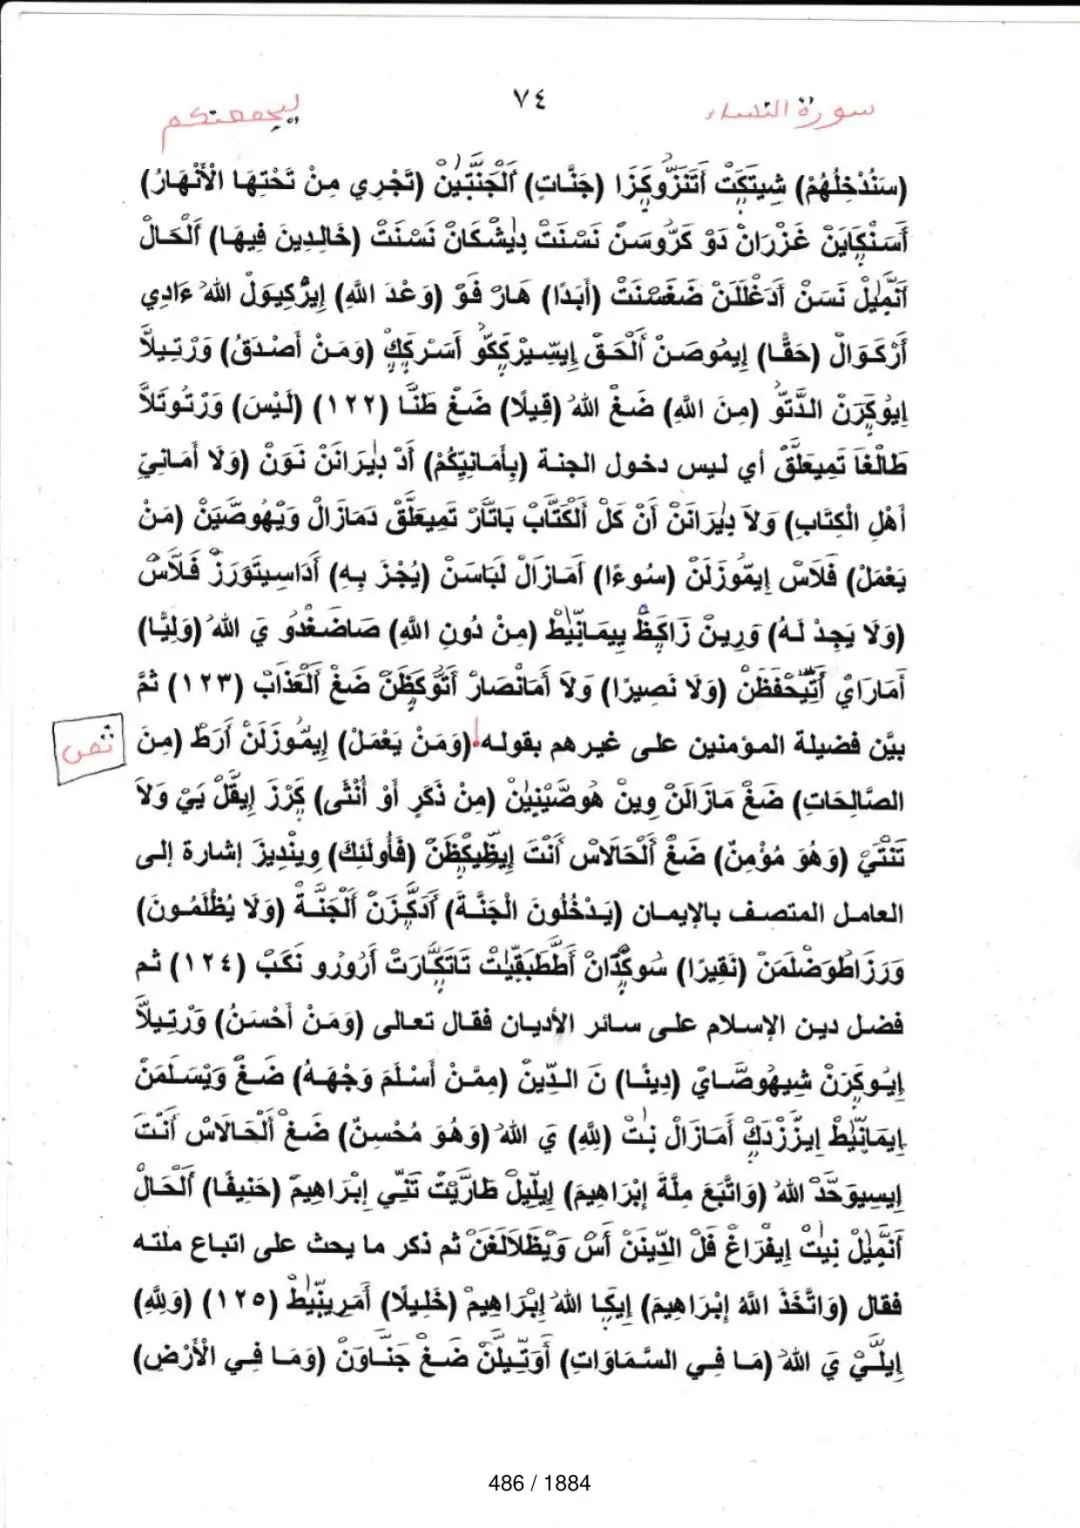 سورة النساء ٧٤ ليجمعنكم
(سَنُدْخِلُهُمْ) شِيتَكَتْ أَتَنَزُّوكَزَا (جَنَّاتٍ) اَلْجَنَّتَيْنْ (تَجْرِي مِنْ تَحْتِهَا الْأَنْهَارُ)
أَسَنْكَايَنْ غَزْرَانْ دَوْ كَرُّوسَنْ نَسْنَتْ دِيْشْكَانْ نَسْنَتْ (خَالِدِينَ فِيهَا) اَلْحَالْ
اَنْمِيلْ نَسَنْ أَدَغْلَلَنْ ضَغَسْنَتْ (أَبَدًا) هَارْ فَوْ (وَعْدَ اللَّهِ) إِيرْكِيوَلْ اللهُ ءَادِي
أَرْكَوَالْ (حَقًّا) إِيمُوصَنْ اَلْحَقْ إِيسِّيرْكَكُو أَسَرْكَكْ (وَمَنْ أَصْدَقُ) وَرْتِيلَّا
إِيُوكَرَنْ الدَّتَوْ (مِنَ اللَّهِ) ضَغْ اللهُ (قِيلًا) ضَغْ طَنَّا (١٢٢) (لَيْسَ) وَرْتُوتَلَّا
طَالْغَا تَمِيعَلَّقْ أي ليس دخول الجنة (بِأَمَانِيِّكُمْ) أَدْ دِيْرَانَنْ نَوَنْ (وَلَا أَمَانِيِّ
أَهْلِ الْكِتَابِ) وَلَا دِيْرَانَنْ أَنْ كَلْ اَلْكَتَّابْ بَاتَّارْ تَمِيعَلَّقْ دَمَازَالْ وَيْهُوصَّيَنْ (مَنْ
يَعْمَلْ) فَلَاسْ إِيمُّوزَلَنْ (سُوءًا) أَمَازَالْ لَبَاسَنْ (يُجْزَ بِهِ) أَدَاسِيتَوَرَزْ فَلَّاسْ
(وَلَا يَجِدْ لَهُ) وَرِينْ زَاكَظْ يِيمَانِّيْطْ (مِنْ دُونِ اللَّهِ) صَاضَغْدُو يَ اللهُ (وَلِيًّا)
أَمَارَايْ أَتِّيحْفَظَنْ (وَلَا نَصِيرًا) وَلَا أَمَانْصَارْ أَتَّوكَظَنْ ضَغْ اَلْعَذَابْ (١٢٣) ثمَّ
بيَّن فضيلة المؤمنين على غيرهم بقوله (وَمَنْ يَعْمَلْ) إِيمُّوزَلَنْ أَرَطْ (مِنَ ثمن
الصَّالِحَاتِ) ضَغْ مَازَالَنْ وِينْ هُوصَّيْنِيْنْ (مِنْ ذَكَرٍ أَوْ أُنْثَى) كَرْزَ إِيقَلْ يَيْ وَلَا
تَنْتَيْ (وَهُوَ مُؤْمِنٌ) ضَغْ اَلْحَالَاسْ أَنْتَ إِيظِّيكْظَنْ (فَأُولَئِكَ) وِينْدِيزَ إشارة إلى
العامل المتصف بالإيمان (يَدْخُلُونَ الْجَنَّةَ) اَدَكَّزَنْ اَلْجَنَّةْ (وَلَا يُظْلَمُونَ)
وَرَزَاطُوَضْلَمَنْ (نَقِيرًا) سُوكْدَانْ أَطَّطَبَقِّيْتْ تَاتَكَّارَتْ أَرُورُو نَكَبْ (١٢٤) ثم
فضل دين الإسلام على سائر الأديان فقال تعالى (وَمَنْ أَحْسَنُ) وَرْتِيلَّا
إِيُوكَرَنْ شِيهُوصَّايْ (دِينًا) نَ الدِّينْ (مِمَّنْ أَسْلَمَ وَجْهَهُ) ضَغْ وَيْسَلَمَنْ
إِيمَانِّيْطْ إِيزَّزْدَكْ أَمَازَالْ نِتْ (لِلَّهِ) يَ اللهُ (وَهُوَ مُحْسِنٌ) ضَغْ اَلْحَالَاسْ أَنْتَ
إِيسِيوَحَّدْ اللهُ (وَاتَّبَعَ مِلَّةَ إِبْرَاهِيمَ) إِيلِّيلْ طَارَّيْتْ تَنِّي إِبْرَاهِيمْ (حَنِيفًا) اَلْحَالْ
اَنْمِّيلْ نِيتْ إِيفْرَاغْ فَلْ الدِّينَنْ أَسْ وَيْظَلَالَغَنْ ثم ذكر ما يحث على اتباع ملته
فقال (وَاتَّخَذَ اللَّهُ إِبْرَاهِيمَ) إِيكَا اللهُ إِبْرَاهِيمْ (خَلِيلًا) أَمَرِينِّيْطْ (١٢٥) (وَلِلَّهِ)
إِيلَّيْ يَ اللهُ (مَا فِي السَّمَاوَاتِ) أَوَتِّيلَنْ ضَغْ جَنَّاوَنْ (وَمَا فِي الْأَرْضِ)
486 / 1884